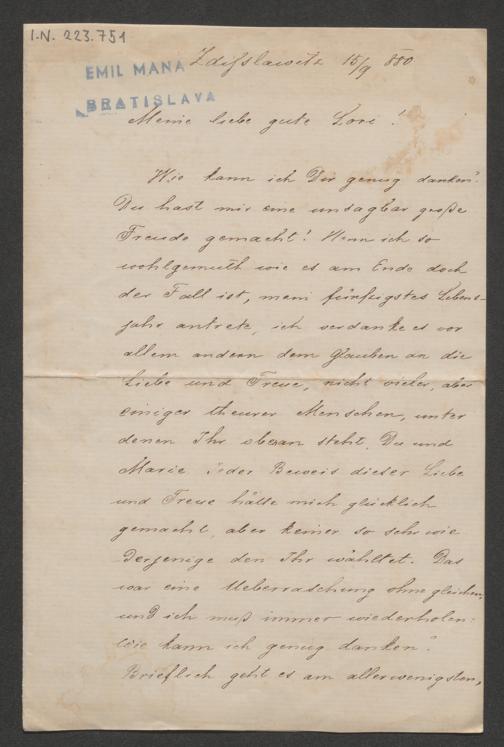 I.N. 223.751
EMIL MANA
BRATISLAVA
Zdißlawitz 15/9 880
Meine liebe gute Lori!
Wie kann ich Dir genug danken?
Du hast mir eine unsagbar große
Freude gemacht! Wenn ich so
wohlgemuth wie es am Ende doch
der Fall ist, mein fünfzigstes Lebens-
jahr antrete, ich verdanke es vor
allem andern dem Glauben an die
Liebe und Treue, nicht vieler, aber
einiger theurer Menschen, unter
denen Ihr obenan steht, Du und
Marie. Jeder Beweis dieser Liebe
und Treue hätte mich glücklich
gemacht, aber keiner so sehr wie
derjenige den Ihr wähltet. Das
war eine Ueberraschung ohne gleichen,
und ich muß immer wiederholen:
wie kann ich genug danken?
Brieflich geht es am allerwenigsten,